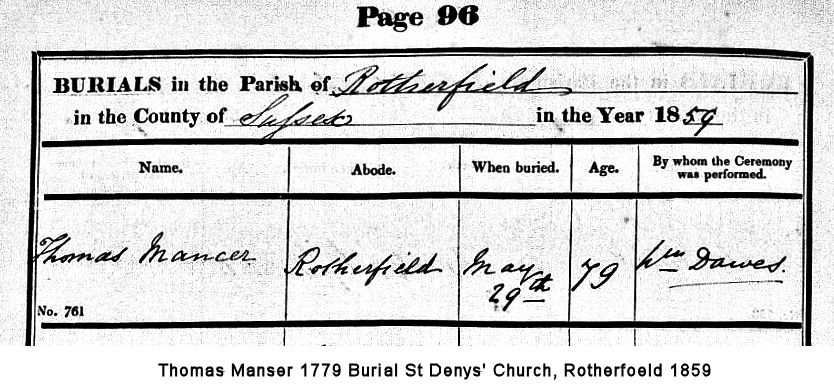 Page 96
BURIALS in the Parish of Rotherfield
in the County of Sussex in the Year 1859
Name. Abode. When buried. Age. By whom the Ceremony was performed.
Thomas Mancer Rotherfield May 29th 79 Wm Dawes.
No. 761
Thomas Manser 1779 Burial St Denys' Church, Rotherfoeld 1859